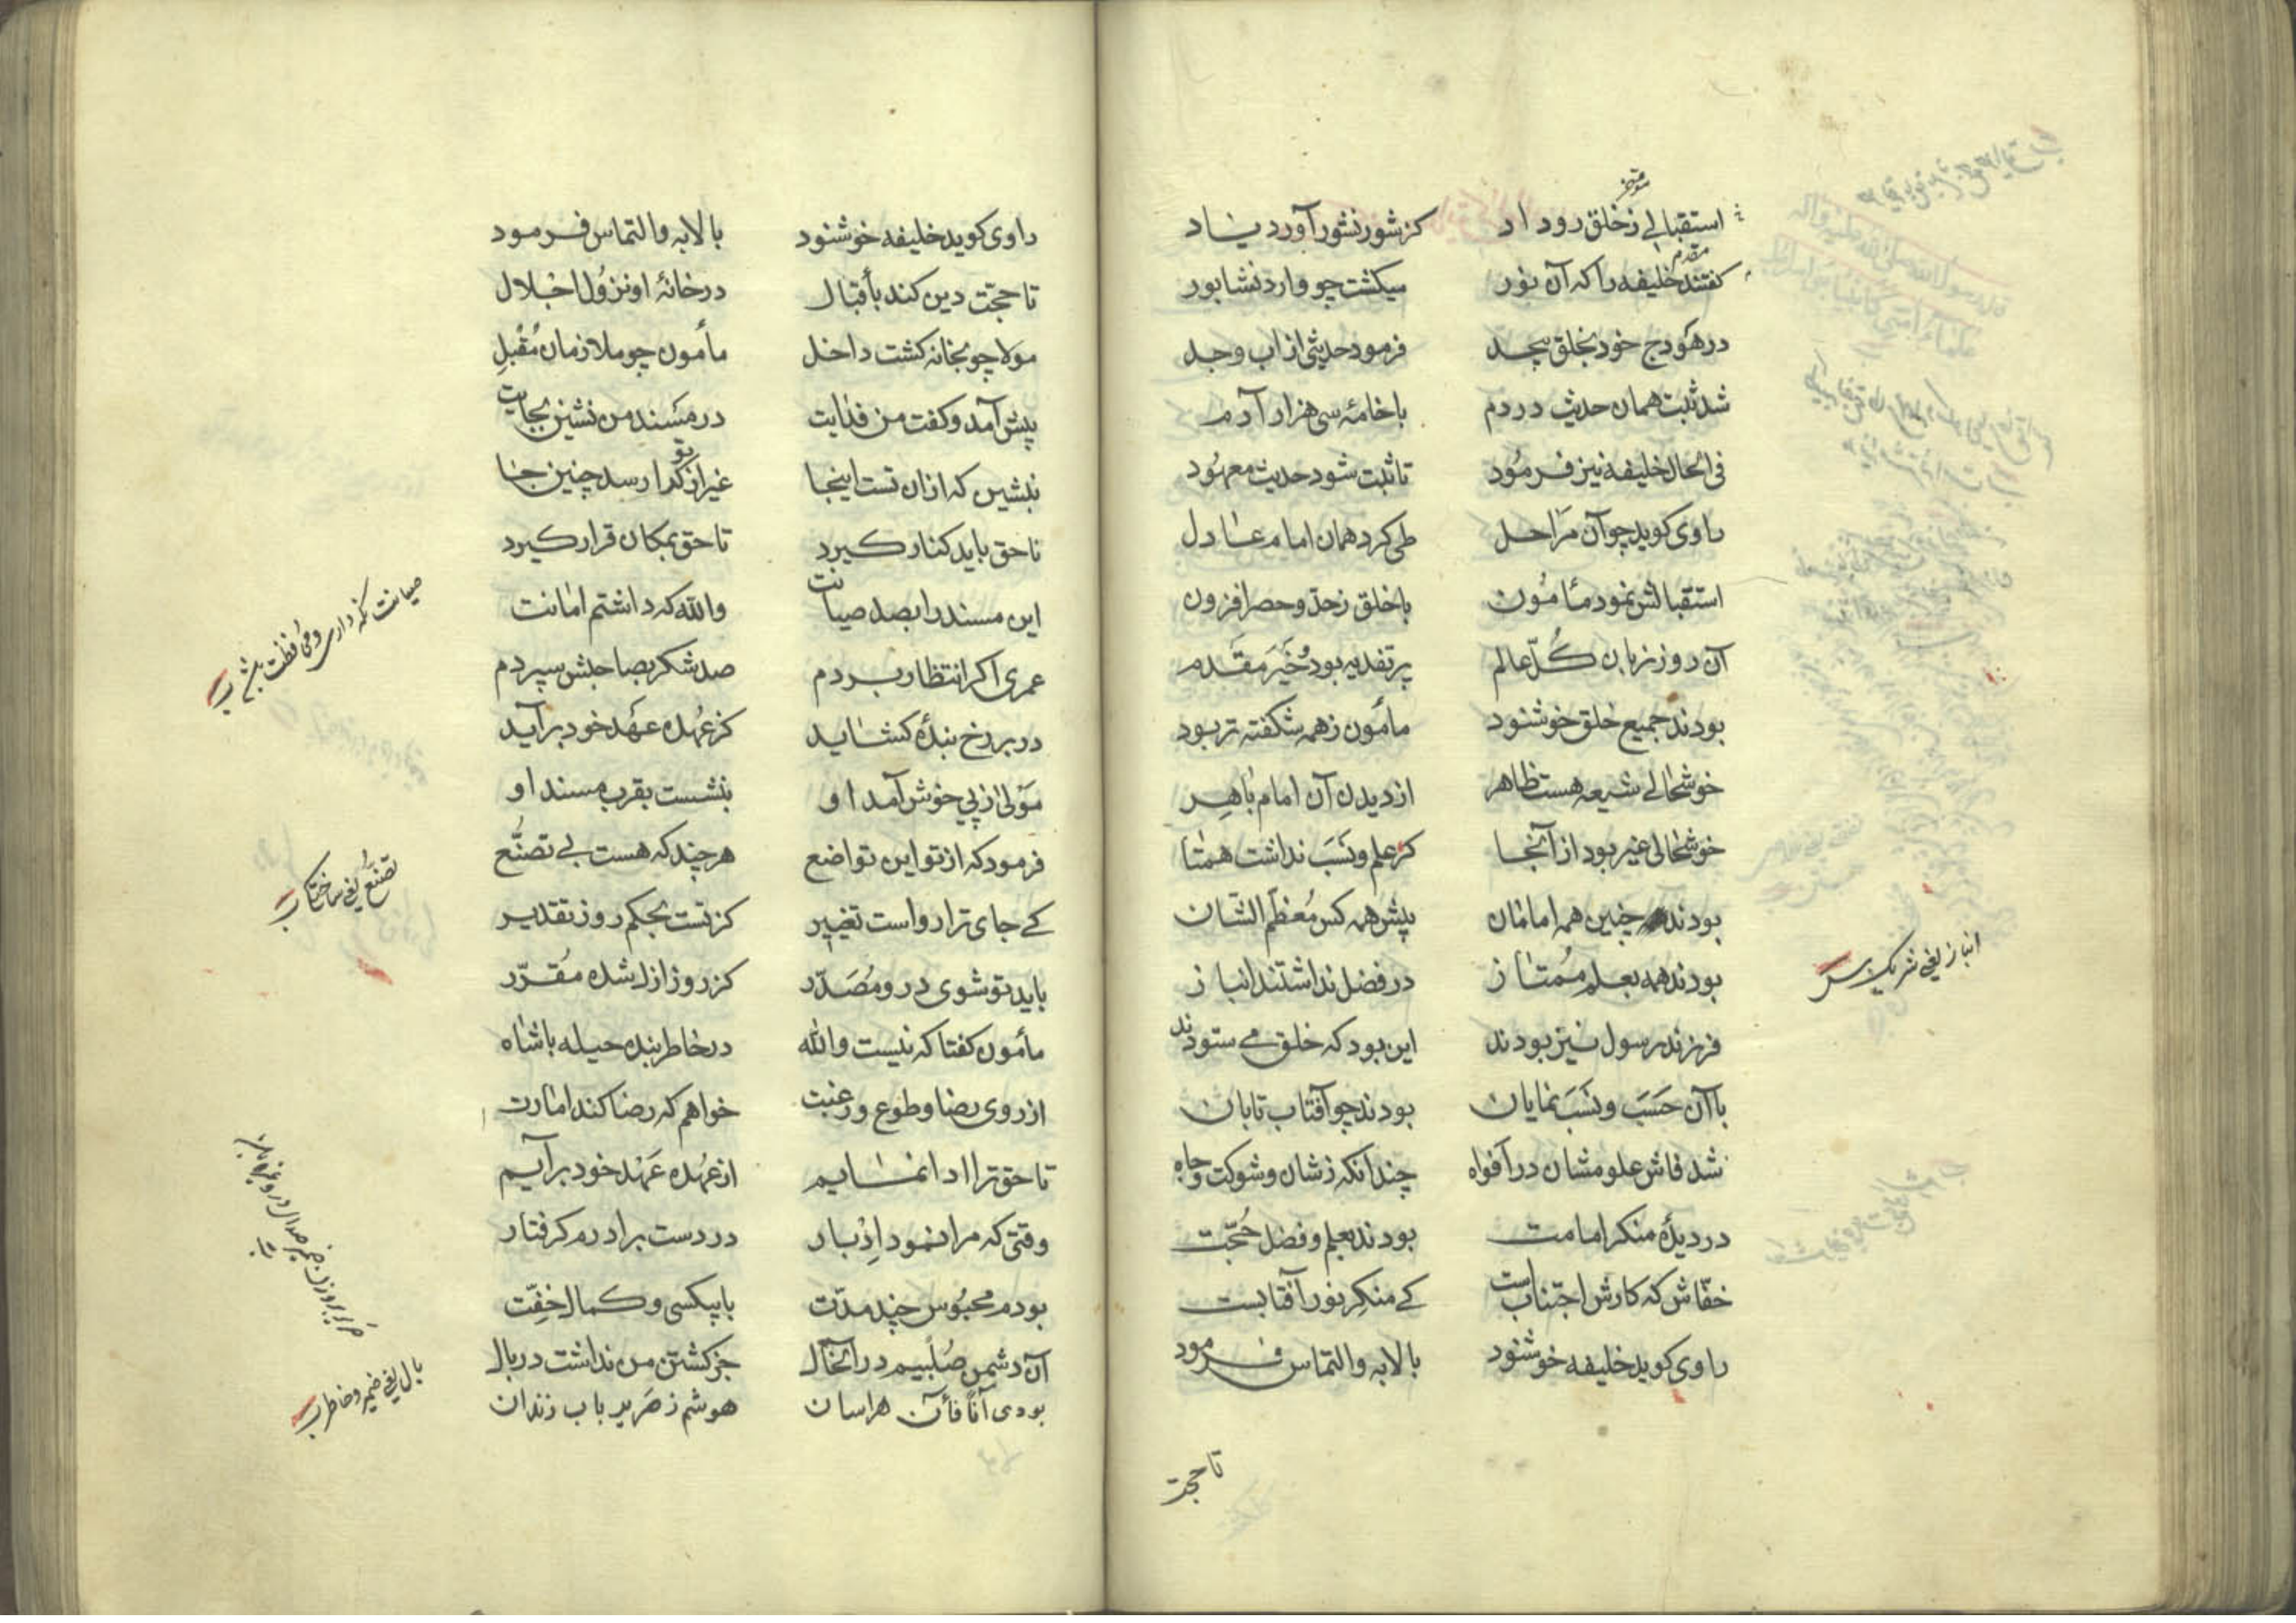 استقبالے زخلق روداد کز شور نشور آورد یاد
مؤخر
کفتند خلیفه را که آن نور میکشت چو وارد نشابور
مقدم
در هودج خود بخلق بیحد فرمود حدیثی از اب وجد
شد ثبت همان حدیث در دم با خامهٔ سی هزار آدم
فی الحال خلیفه نیز فرمود تا ثبت شود حدیث معهود
راوی کوید چو آن مراحل طی کرد همان امام عادل
استقبالش نمود مأمون با خلق زحد وحصر افزون
آن روز زبان کل عالم پر تفدیه بود و خیر مقدم
بودند جمیع خلق خوشنود مأمون زهمه شکفته تر بود
خوشحالے شیعه هست ظاهر از دیدن آن امام باهر
خوشحالی غیر بود از آنجا کز علم ونسب نداشت همتا
بودند چنین همه امامان پیش همه کس معظم الشان
بودند همه بعلم ممتاز در فضل نداشتند انباز
انباز یعنی شریک
فرزند رسول نیز بودند این بود که خلق مے ستودند
با آن حسب ونسب نمایان بودند چو آفتاب تابان
شد فاش علومشان در افواه چندانکه زشان وشوکت وجاه
در دیدهٔ منکر امامت بودند بعلم وفضل حجت
خفاش که کارش اجتنابست کے منکر نور آفتابست
راوی کوید خلیفه خوشنود با لابه والتماس فرمود
تا حجت
راوی کوید خلیفه خوشنود با لابه والتماس فرمود
تا حجت دین کند بأقبال در خانهٔ او نزول اجلال
مولا چو بخانه کشت داخل مأمون چو ملازمان مقبل
پیش آمد وکفت من فدایت در مسند من نشین بجایت
بنشین که از ان تست اینجا غیر از تو کرا رسد چنین جا
ناحق باید کنار کیرد تا حق بمکان قرار کیرد
این مسند را بصد صیانت والله که داشتم امانت
صیانت نکه داری ومحافظت
عمری اکر انتظار بردم صد شکر بصاحبش سپردم
در بر رخ بندهٔ کشاید کز عهدهٔ عهد خود برآید
مولی از پی خوش آمد او بنشست بقرب مسند او
فرمود که از تو این تواضع هر چند که هست بے تصنع
تصنع یعنی ساختکی
کے جای ترا رواست تغییر کز تست بحکم روز تقدیر
باید تو شوی درو مصدر کز روز ازل شده مقرر
مأمون کفتا که نیست والله در خاطر بنده حیله با شاه
از روی رضا وطوع ورغبت خواهم که رضا کند امارت
تا حق ترا ادا نمایم از عهدهٔ عهد خود برآیم
وقتی که مرا نمود ادبار در دست برادرم کرفتار
بودم محبوس چند مدت با بیکسی وکمال خفت
آن دشمن صلبیم در آنحال جز کشتن من نداشت در بال
بال یعنی ضمیر وخاطر
بودی آناً فآن هراسان هوشم ز صریر باب زندان